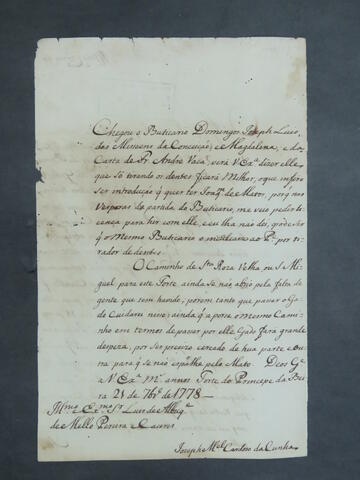 Chegou o Buticario Domingos Joseph Luis,
das Missoens da Conceição, e Magdalena, e da
Carta de Fr. Andre Vaca, verá V Exª dizer elle,
que Só tirando os dentes ficará Milhor, o que infiro
ser introdução q̃ quer ter Joaqᵐ de Matos, porq̃ nas
Vesporas da partida do Buticario, me veio pedir li=
cença para hir com elle, eu lha não dei, que
q̃ o mesmo Buticario o ao Pᵉ por ti=
rador de dentes.
O Caminho de Stª Roza Velha, ou S. Mi
guel para este Forte ainda se não abrio pela falta de
gente que tem havido, porem tanto que passar o Ga
do Cuidarei nisso; ainda q̃ a por o mesmo Cami=
nho em termos de passar por elle Gado fará grande
despeza, por ser precizo cercado de hua parte e ou
tra para q̃ se não espalhe pelo Mato. Deos Gᵉ
a V Exª mˢ annos Forte do Principe da Bei
ra 21 de 7bro de 1778
Illmo e Exmo Sr Luis de Albuqᵉ
de Mello Pereira e Caceres
Joseph Mel Cardoso da Cunha